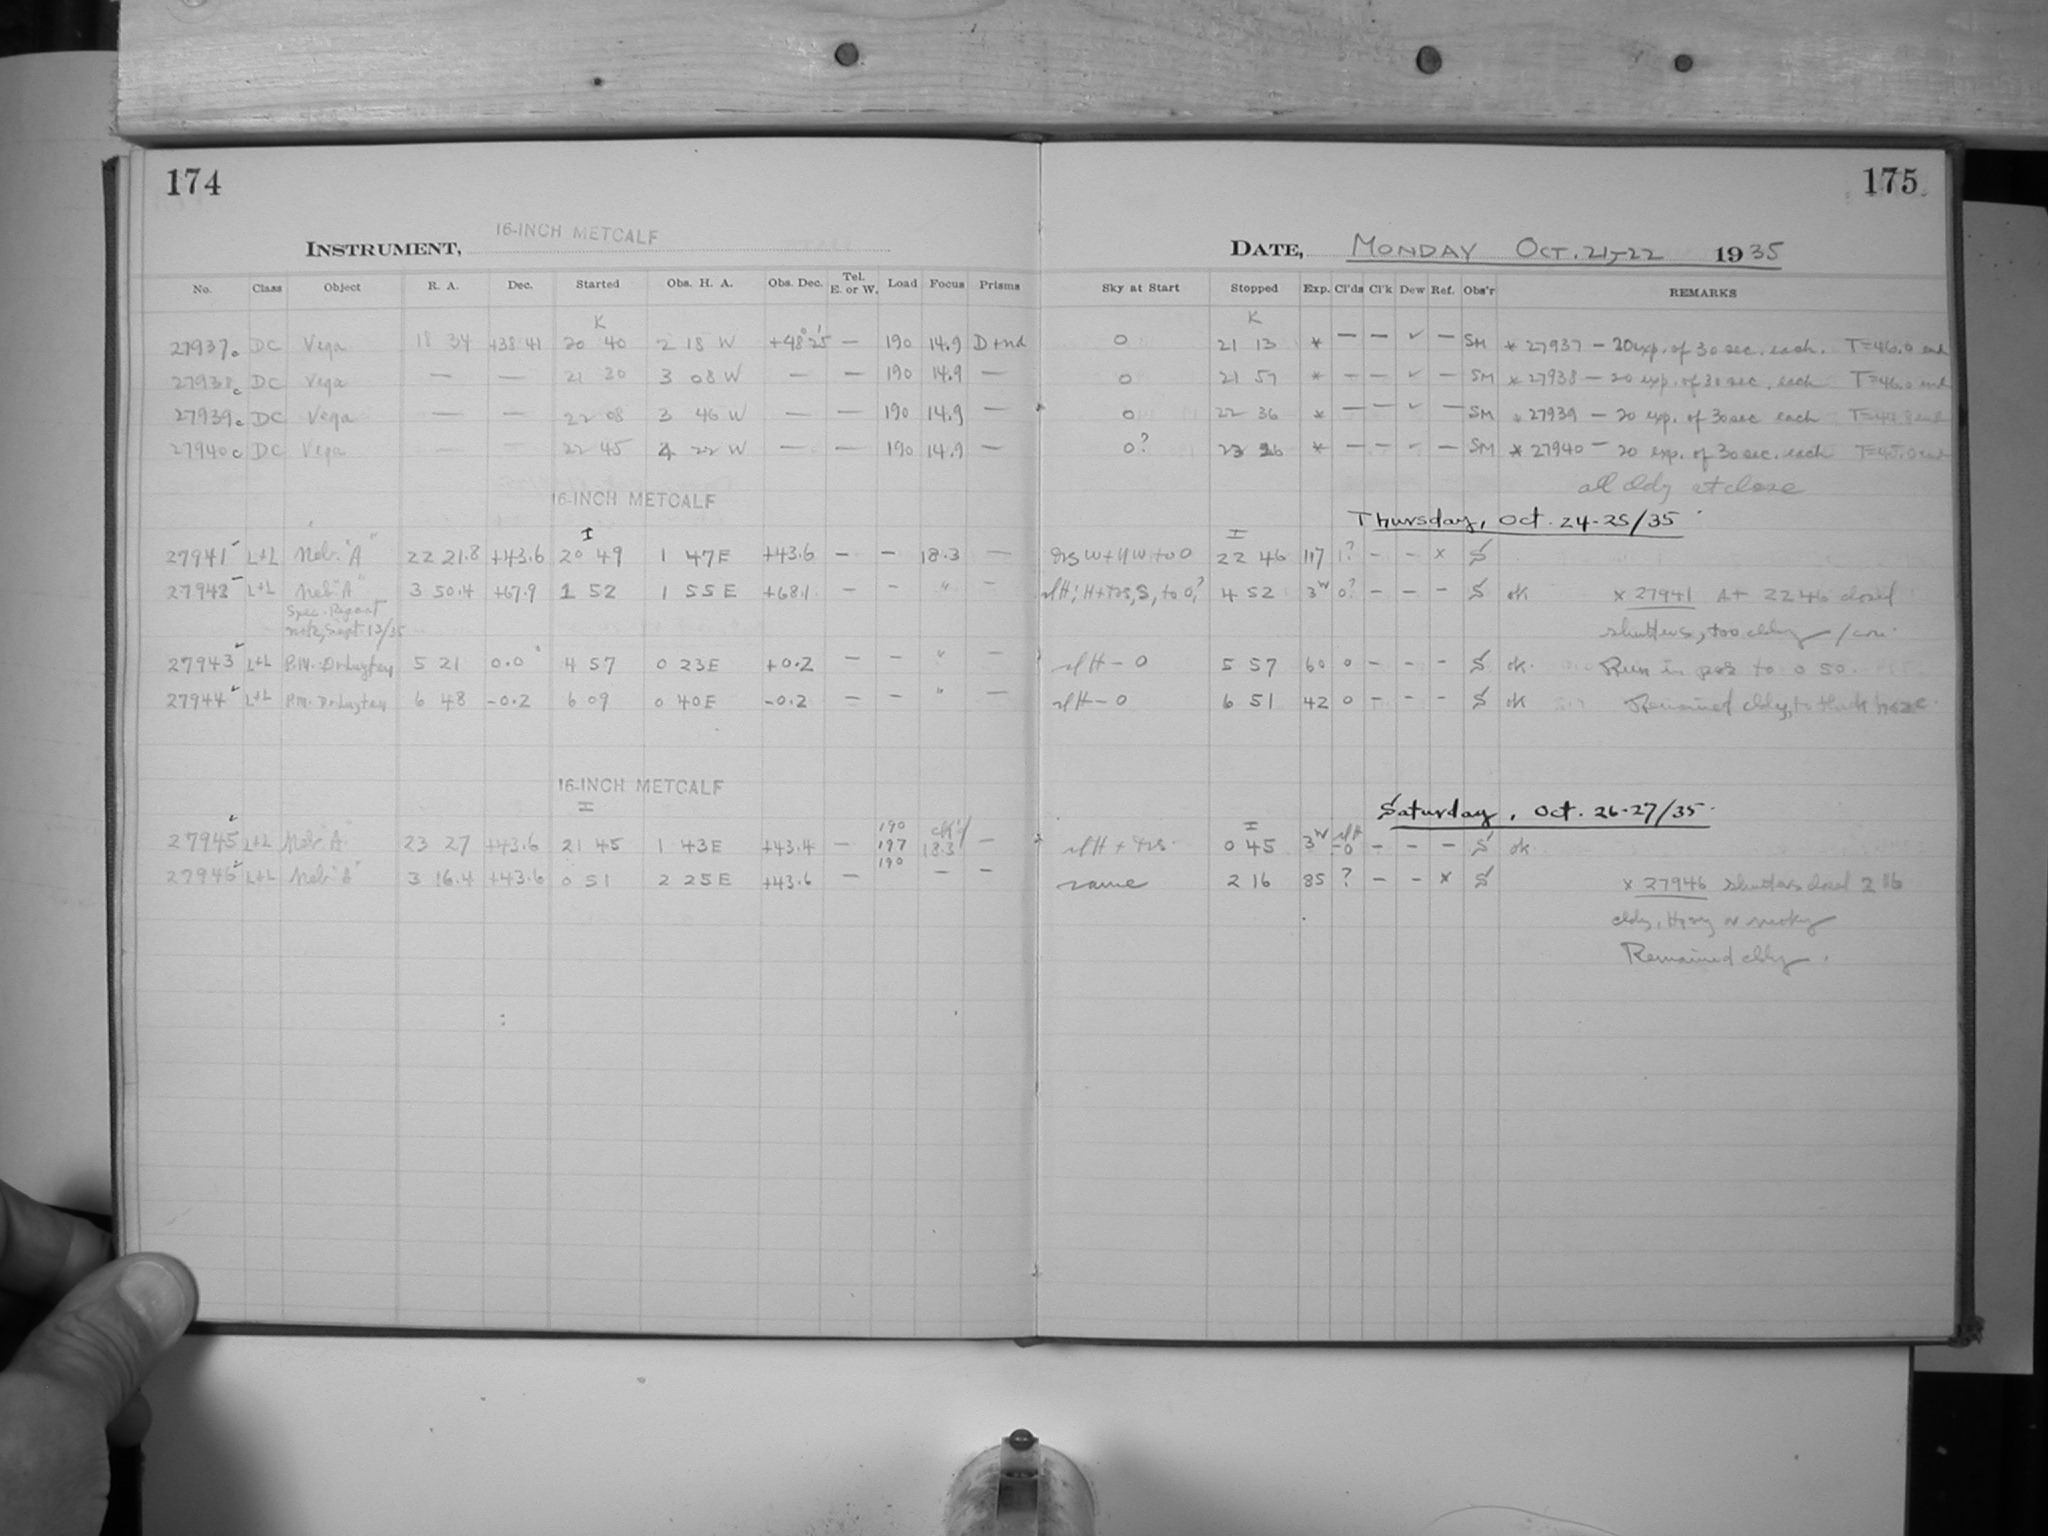 174
175
INSTRUMENT, 16-INCH METCALF
DATE, MONDAY OCT. 21-22 1935
No. Class Object R. A. Dec. Started Obs. H. A. Obs. Dec. Tel. E. or W. Load Focus Prisms Sky at Start Stopped Exp. Cl'ds Cl'k Dew Ref. Obs'r REMARKS
K K
27937c DC Vega 18 34 +38 41 20 40 2 18 W +48° 25' — 190 14.9 D+nd 0 21 13 * — — ✓ — SM * 27937 — 20 exp. of 30 sec. each. T=46.0 end
27938c DC Vega — — 21 30 3 08 W — — 190 14.9 — 0 21 57 * — — ✓ — SM * 27938 — 20 exp. of 30 sec. each T=46.0 end
27939c DC Vega — — 22 08 3 46 W — — 190 14.9 — 0 22 36 * — — ✓ — SM * 27939 — 20 exp. of 30 sec each T=44.8 end
27940c DC Vega — — 22 45 4 22 W — — 190 14.9 — 0? 23 26 * — — ✓ — SM * 27940 — 20 exp. of 30 sec. each T=45.0 end
all cldy at close
16-INCH METCALF
Thursday, Oct. 24-25/35
I I
27941 L+L Neb. "A" 22 21.8 +43.6 20 49 1 47E +43.6 — — 18.3 — W + NW to 0 22 46 117 1? — — x S
27942 L+L Neb "A" 3 50.4 +67.9 1 52 1 55 E +68.1 — — " — slH; H+ S, to 0? 4 52 3 0? — — — S ok x 27941 At 22 46 closed
Spec. Region
note, Sept. 13/35
shutters, too cldy
27943 L+L P.M. Dr Luyten 5 21 0.0 4 57 0 23E +0.2 — — " — slH — 0 5 57 60 0 — — — S ok. Run in to 0 50.
27944 L+L P.M. Dr Luyten 6 48 -0.2 6 09 0 40E -0.2 — — " — slH — 0 6 51 42 0 — — — S ok Remained cldy, to thick haze.
16-INCH METCALF
Saturday, Oct. 26-27/35.
I I
27945 L+L Neb "A" 23 27 +43.6 21 45 1 43E +43.4 — 190 197 190 18.3 — slH + 0 45 3 slH -0 — — — S ok
27946 L+L Neb "A" 3 16.4 +43.6 0 51 2 25E +43.6 — — — same 2 16 85 ? — — x S x 27946 shutters closed 2 16
cldy, Hazy or smoky
Remained cldy.